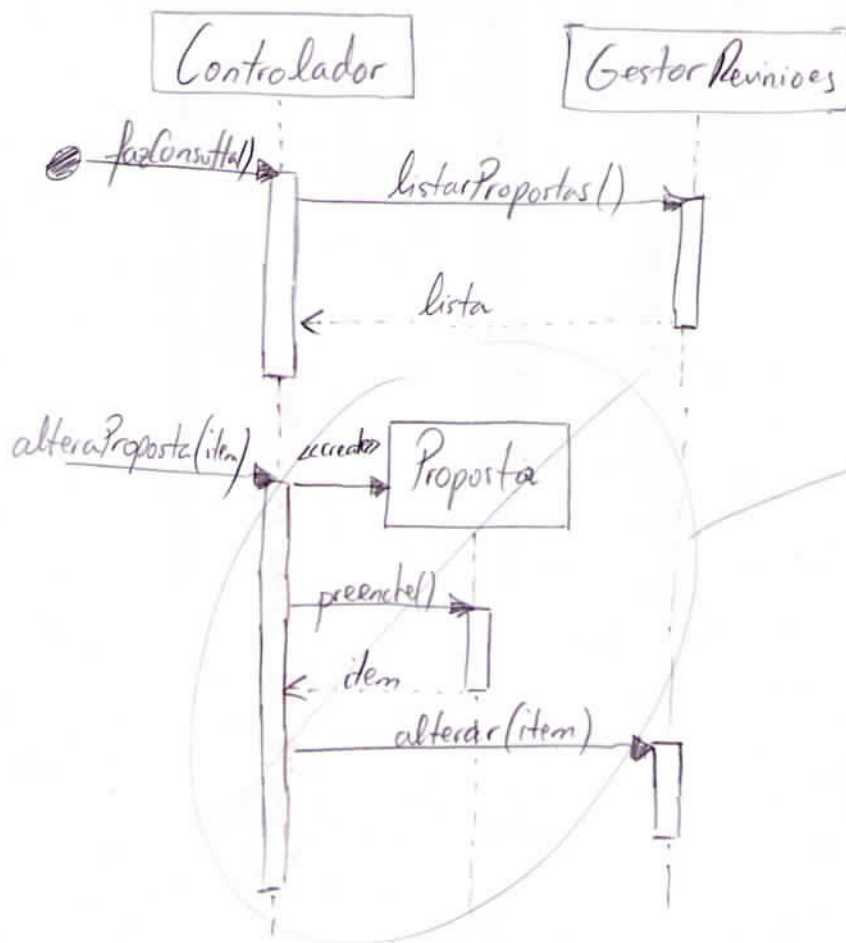 Controlador
GestorReunioes
fazConsulta()
listarPropostas()
lista
alteraProposta(item)
<<create>>
Proposta
preenche()
item
alterar(item)